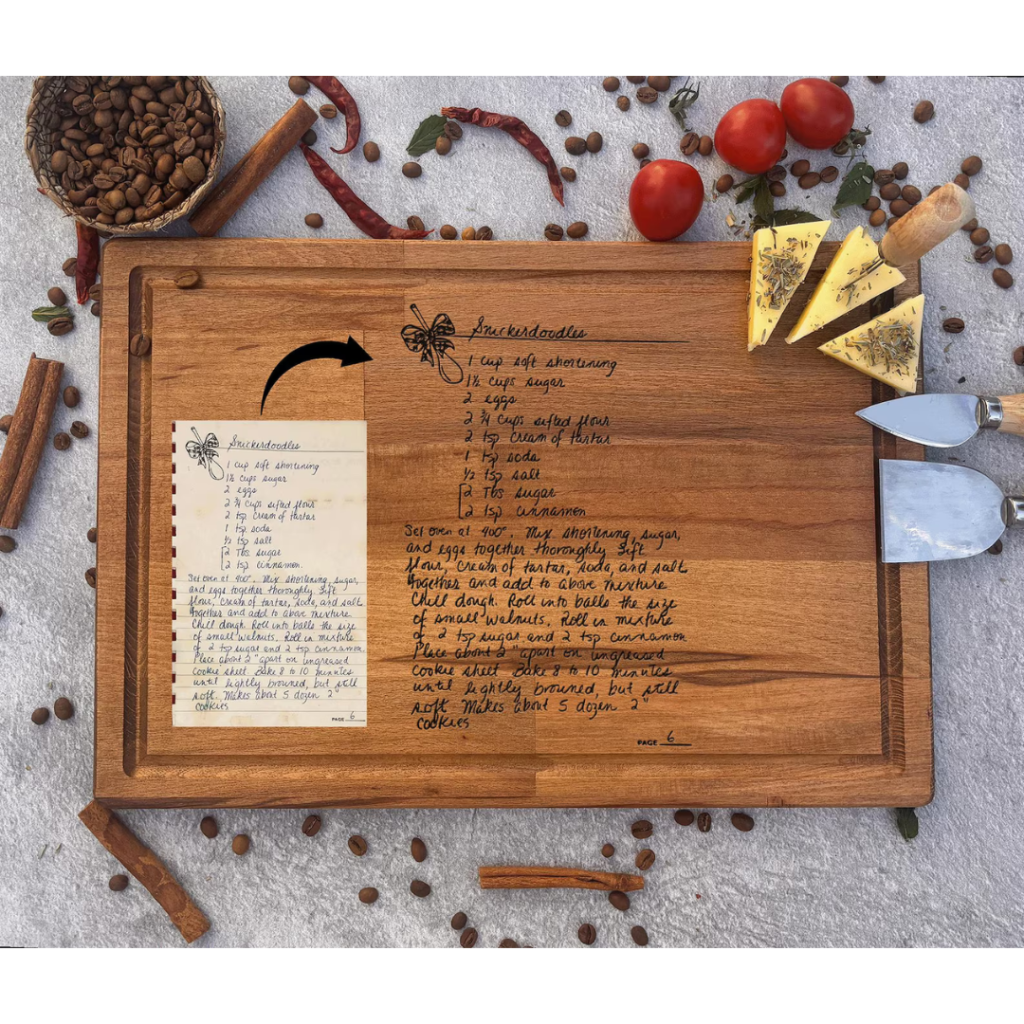 Snickerdoodles
1 cup soft shortening
1½ cups sugar
2 eggs
2 ¾ cups sifted flour
2 tsp cream of tartar
1 tsp soda
½ tsp salt
2 Tbs sugar
2 tsp cinnamon
Set oven at 400°. Mix shortening, sugar,
and eggs together thoroughly Sift
flour, cream of tartar, soda, and salt
together and add to above mixture
Chill dough. Roll into balls the size
of small walnuts. Roll in mixture
of 2 tsp sugar and 2 tsp cinnamon.
Place about 2" apart on ungreased
cookie sheet Bake 8 to 10 minutes
until lightly browned, but still
soft. Makes about 5 dozen 2"
cookies
PAGE 6
Snickerdoodles
1 cup soft shortening
1½ cups sugar
2 eggs
2 ¾ cups sifted flour
2 tsp cream of tartar
1 tsp soda
½ tsp salt
2 Tbs sugar
2 tsp cinnamon
Set oven at 400°. Mix shortening, sugar,
and eggs together thoroughly Sift
flour, cream of tartar, soda, and salt
together and add to above mixture
Chill dough. Roll into balls the size
of small walnuts. Roll in mixture
of 2 tsp sugar and 2 tsp cinnamon
Place about 2" apart on ungreased
cookie sheet Bake 8 to 10 minutes
until lightly browned, but still
soft. Makes about 5 dozen 2"
cookies
PAGE 6